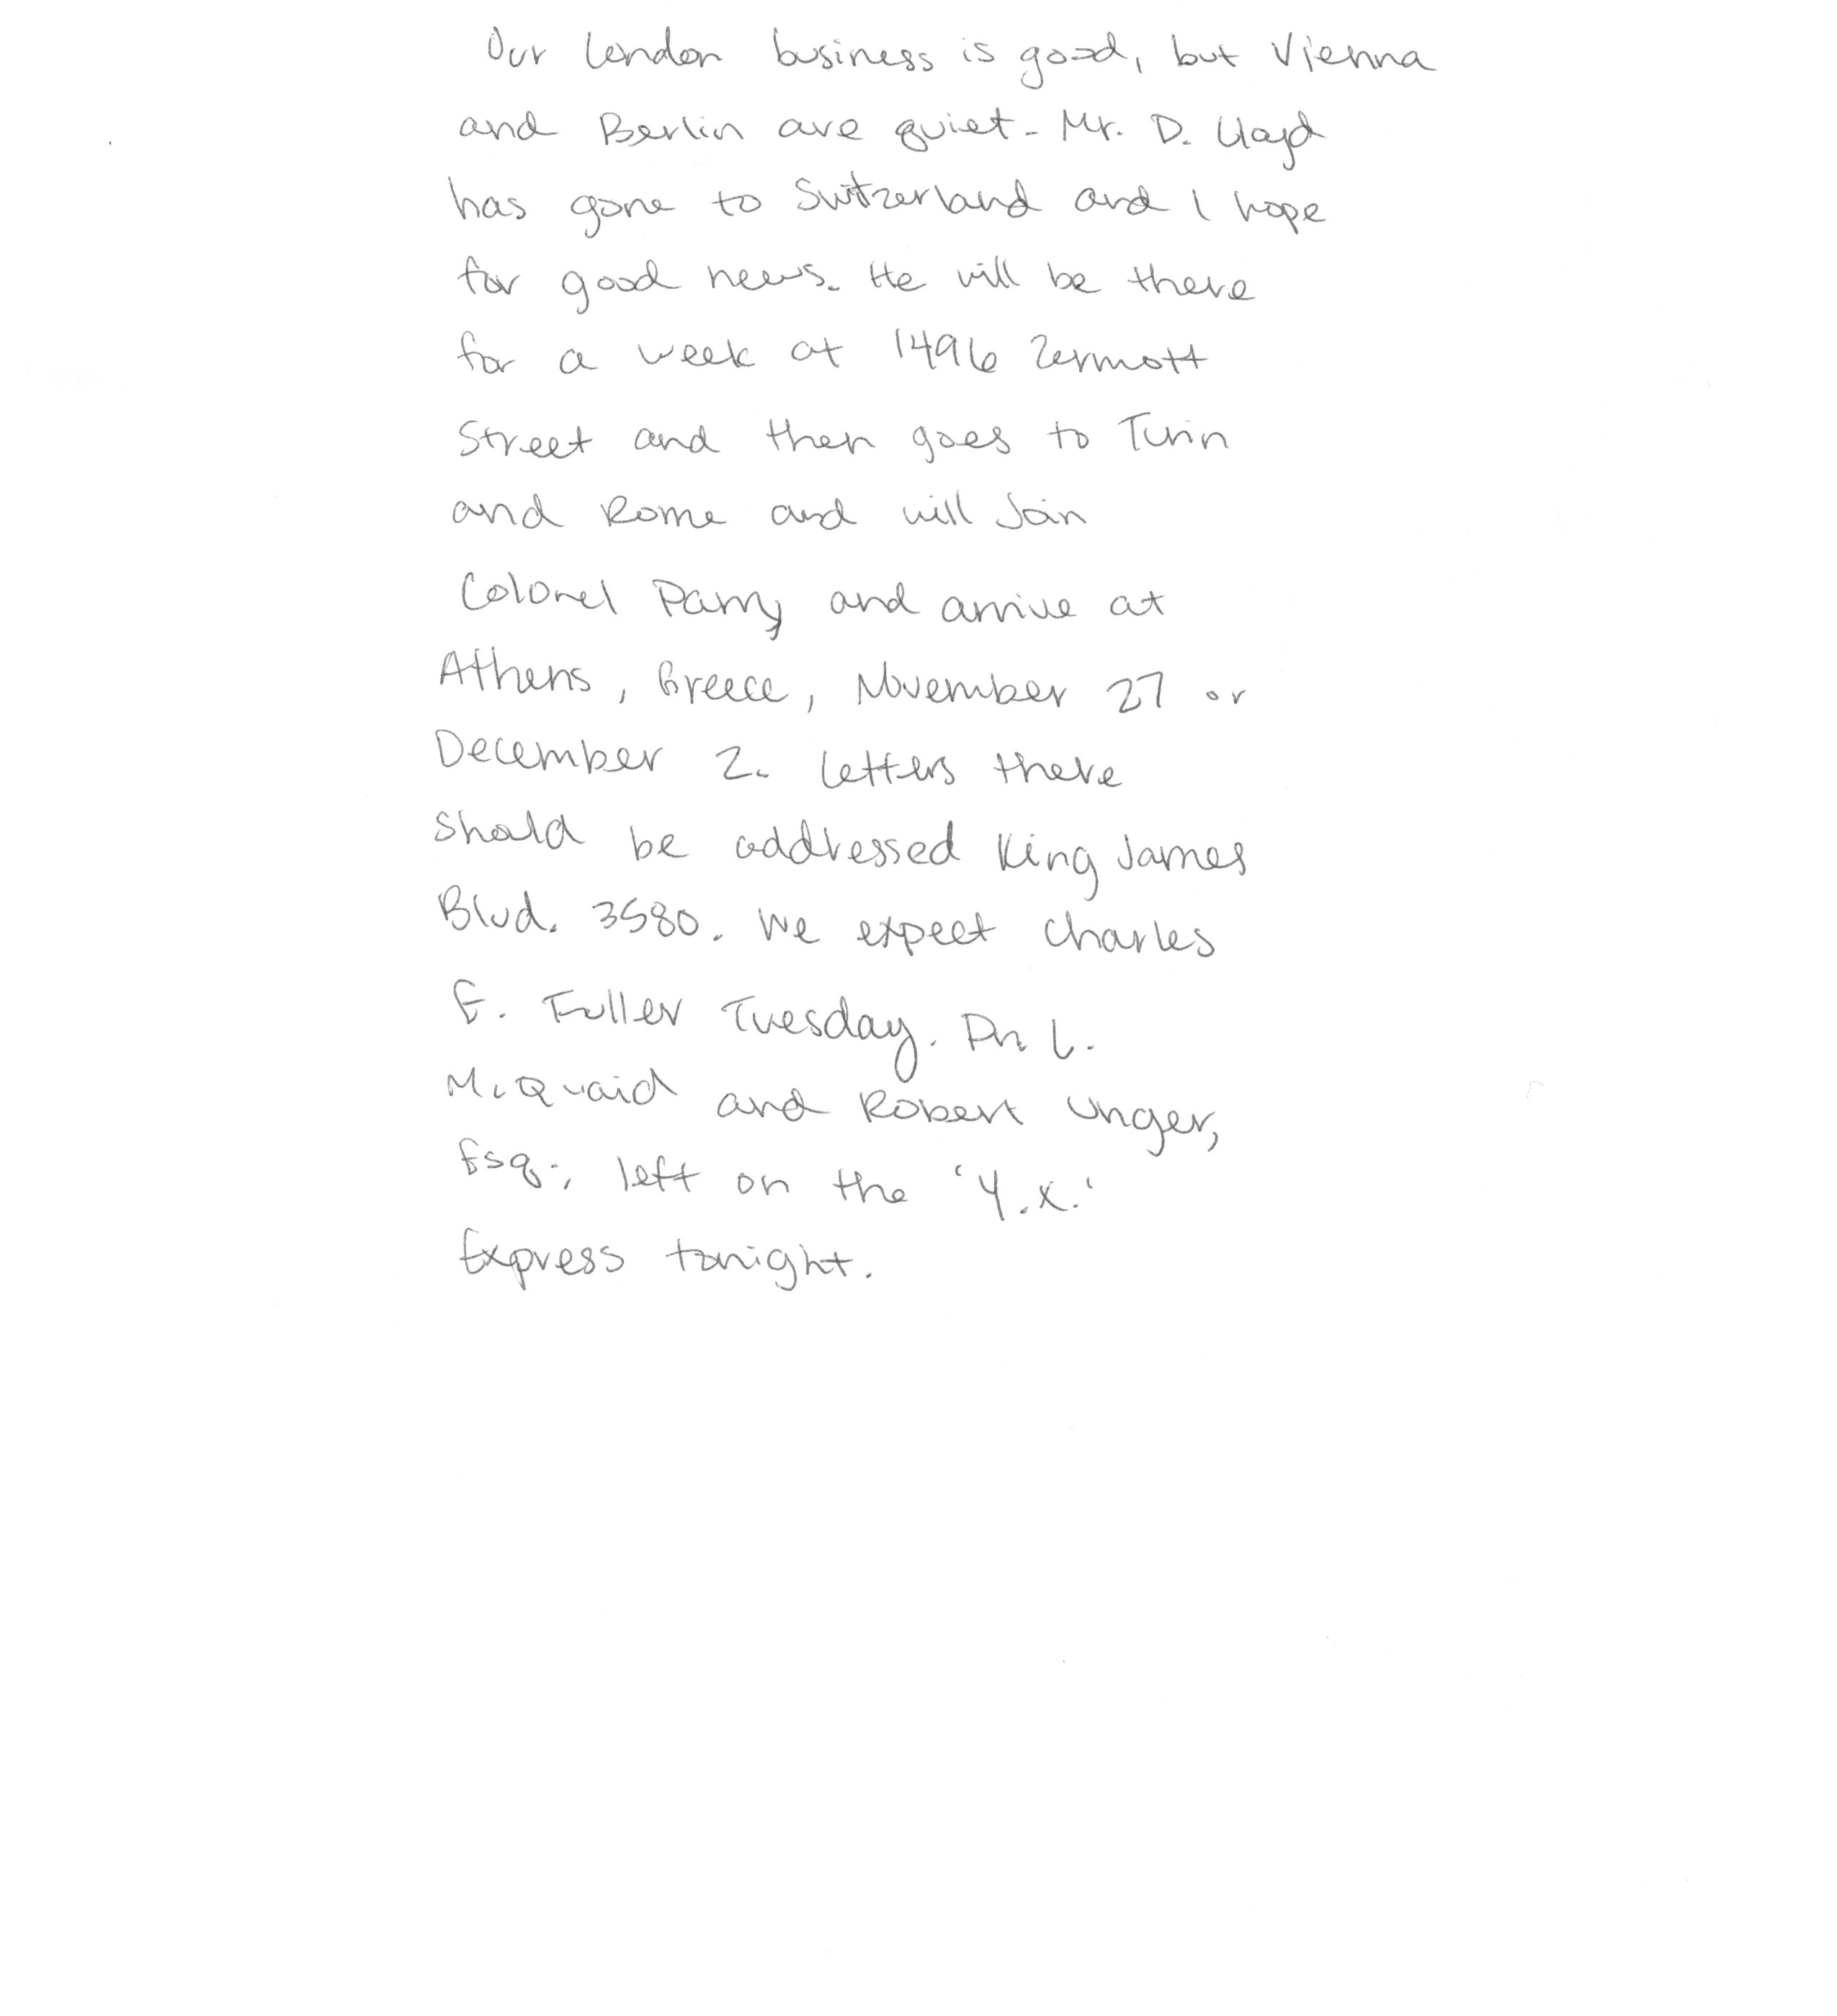 Our London business is good, but Vienna
and Berlin are quiet. Mr. D. Lloyd
has gone to Switzerland and I hope
for good news. He will be there
for a week at 1496 Zermott
Street and then goes to Turin
and Rome and will Join
Colonel Parry and arrive at
Athens, Greece, November 27 or
December 2. Letters there
should be addressed King James
Blvd. 3580. We expect Charles
E. Fuller Tuesday. Dr. L.
McQuaid and Robert Unger,
Esq., left on the 'Y.X.'
Express tonight.